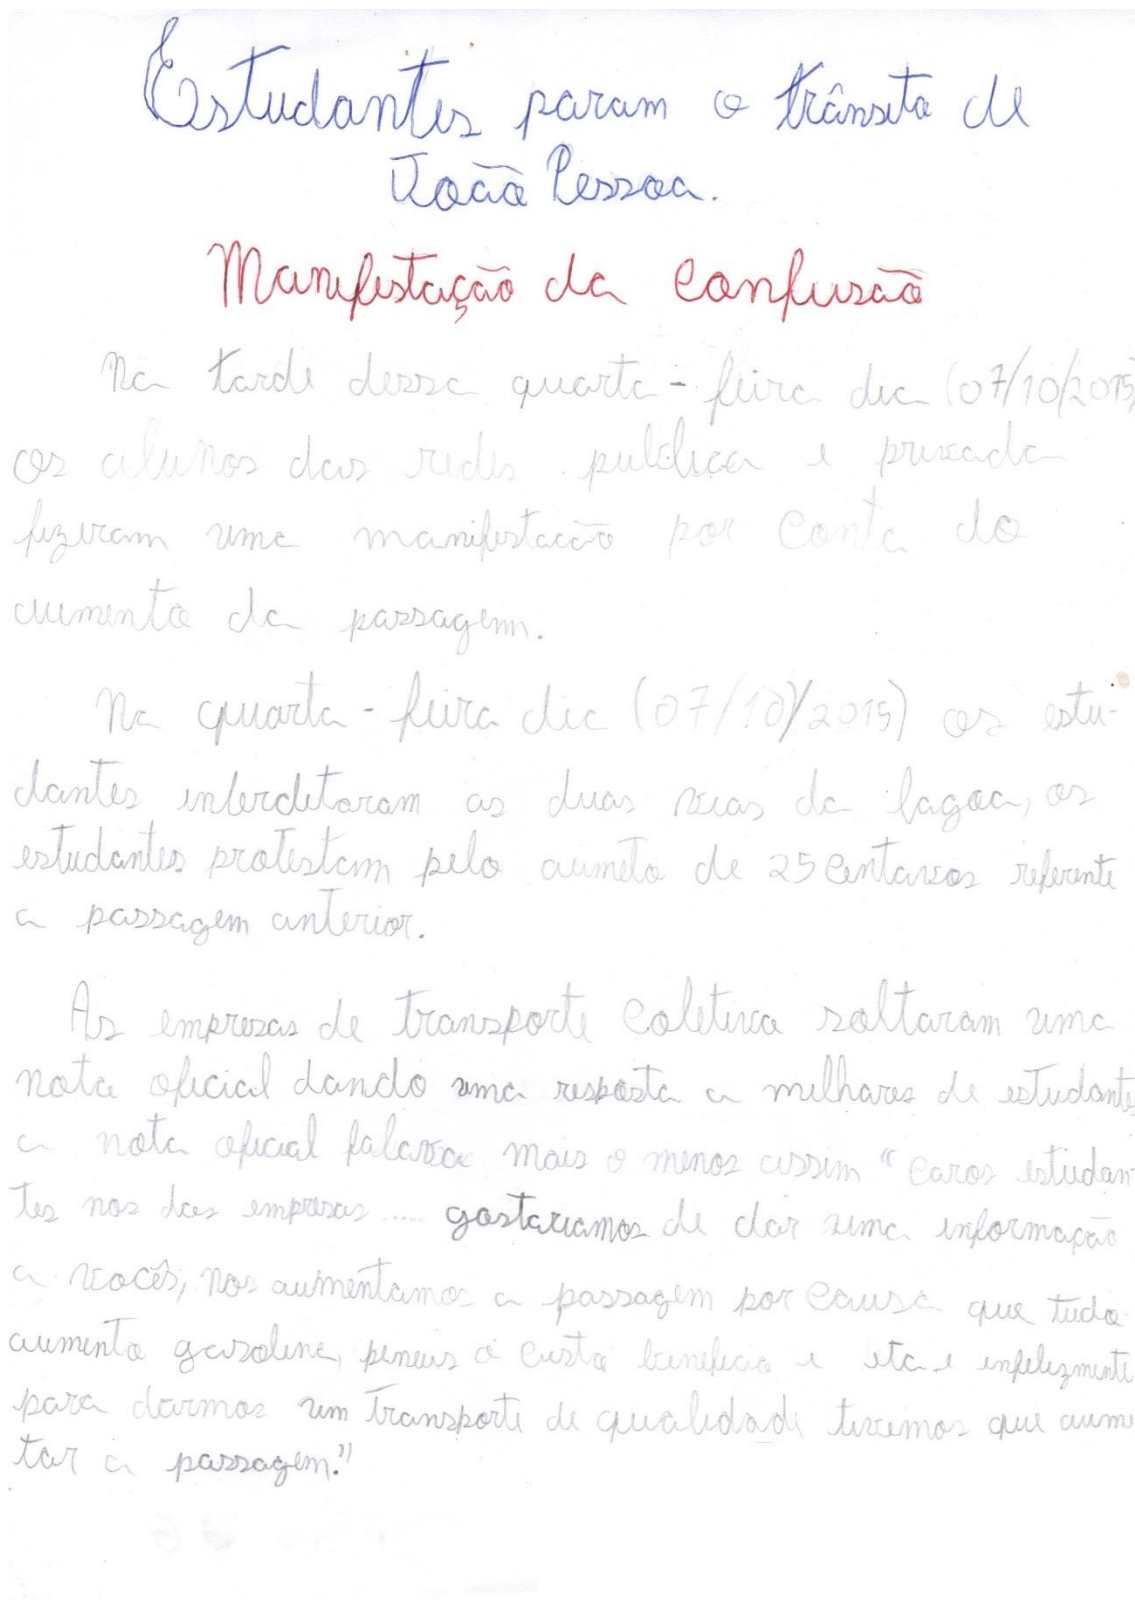 Estudantes param o trânsito de
João Pessoa.
Manifestação da confusão
Na tarde dessa quarta-feira dia (07/10/2015)
os alunos das redes publica e privada
fizeram uma manifestacão por conta do
aumento da passagem.
Na quarta-feira dia (07/10/2015) os estu-
dantes interditaram as duas vias da lagoa, os
estudantes protestam pelo aumeto de 25 centavos referente
a passagem anterior.
As empresas de transporte coletivo soltaram uma
nota oficial dando uma resposta a milhares de estudantes
a nota oficial falava mais o menos assim "caros estudan-
tes nos das empresas ..... gostariamos de dar uma informação
a vocês, nos aumentamos a passagem por causa que tudo
aumento gasolina, pineus o custo beneficio e etc e infelizmente
para darmos um transporte de qualidade tivemos que aume
tar a passagem."